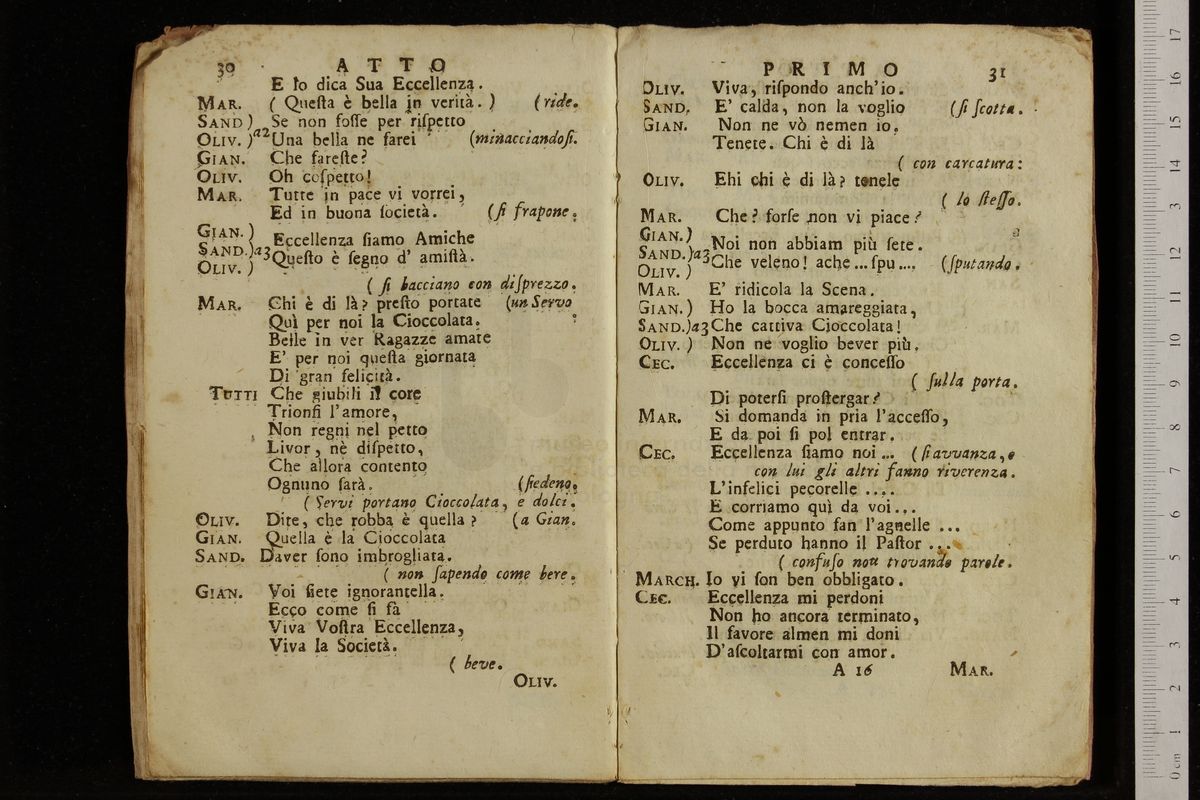 30 ATTO
E Io dica Sua Eccellenza.
MAR. ( Queſta è bella in verità. ) ( ride.
SAND ) Se non foſſe per riſpetto
OLIV. ) a2 Una bella ne farei (minacciandoſi.
GIAN. Che fareſte?
OLIV. Oh coſpetto!
MAR. Tutte in pace vi vorrei,
Ed in buona ſocietà. (ſi frapone.
GIAN. )
SAND. )a3 Eccellenza ſiamo Amiche
OLIV. ) Queſto è ſegno d' amiſtà.
( ſi bacciano con diſprezzo.
MAR. Chi è di là? preſto portate (un Servo
Quì per noi la Cioccolata.
Belle in ver Ragazze amate
E' per noi queſta giornata
Di gran felicità.
TUTTI Che giubili il core
Trionfi l'amore,
Non regni nel petto
Livor, nè diſpetto,
Che allora contento
Ognuno ſarà. (ſiedeno.
( Servi portano Cioccolata, e dolci.
OLIV. Dite, che robba è quella? (a Gian.
GIAN. Quella è la Cioccolata
SAND. Daver ſono imbrogliata.
( non ſapendo come bere.
GIAN. Voi ſiete ignorantella.
Ecco come ſi fà
Viva Voſtra Eccellenza,
Viva la Società.
( beve.
OLIV.
PRIMO 31
OLIV. Viva, riſpondo anch'io.
SAND. E' calda, non la voglio (ſi ſcotta.
GIAN. Non ne vò nemen io.
Tenete. Chi è di là
( con carcatura:
OLIV. Ehi chi è di là? tenele
( lo ſteſſo.
MAR. Che? forſe non vi piace?
GIAN. )
SAND. )a3 Noi non abbiam più ſete.
OLIV. ) Che veleno! ache... ſpu.... (ſputando.
MAR. E' ridicola la Scena.
GIAN. ) Ho la bocca amareggiata,
SAND. )a3 Che cattiva Cioccolata!
OLIV. ) Non ne voglio bever più.
CEC. Eccellenza ci è conceſſo
( ſulla porta.
Di poterſi proſtergar?
MAR. Si domanda in pria l'acceſſo,
E da poi ſi pol entrar.
CEC. Eccellenza ſiamo noi... (ſi avvanza, e
con lui gli altri fanno riverenza.
L'infelici pecorelle ....
E corriamo quì da voi...
Come appunto fan l'agnelle ...
Se perduto hanno il Paſtor ...
( confuſo non trovando parole.
MARCH. Io vi ſon ben obbligato.
CEC. Eccellenza mi perdoni
Non ho ancora terminato,
Il favore almen mi doni
D'aſcoltarmi con amor.
A 16 MAR.
0 cm 1 2 3 4 5 6 7 8 9 10 11 12 13 14 15 16 17